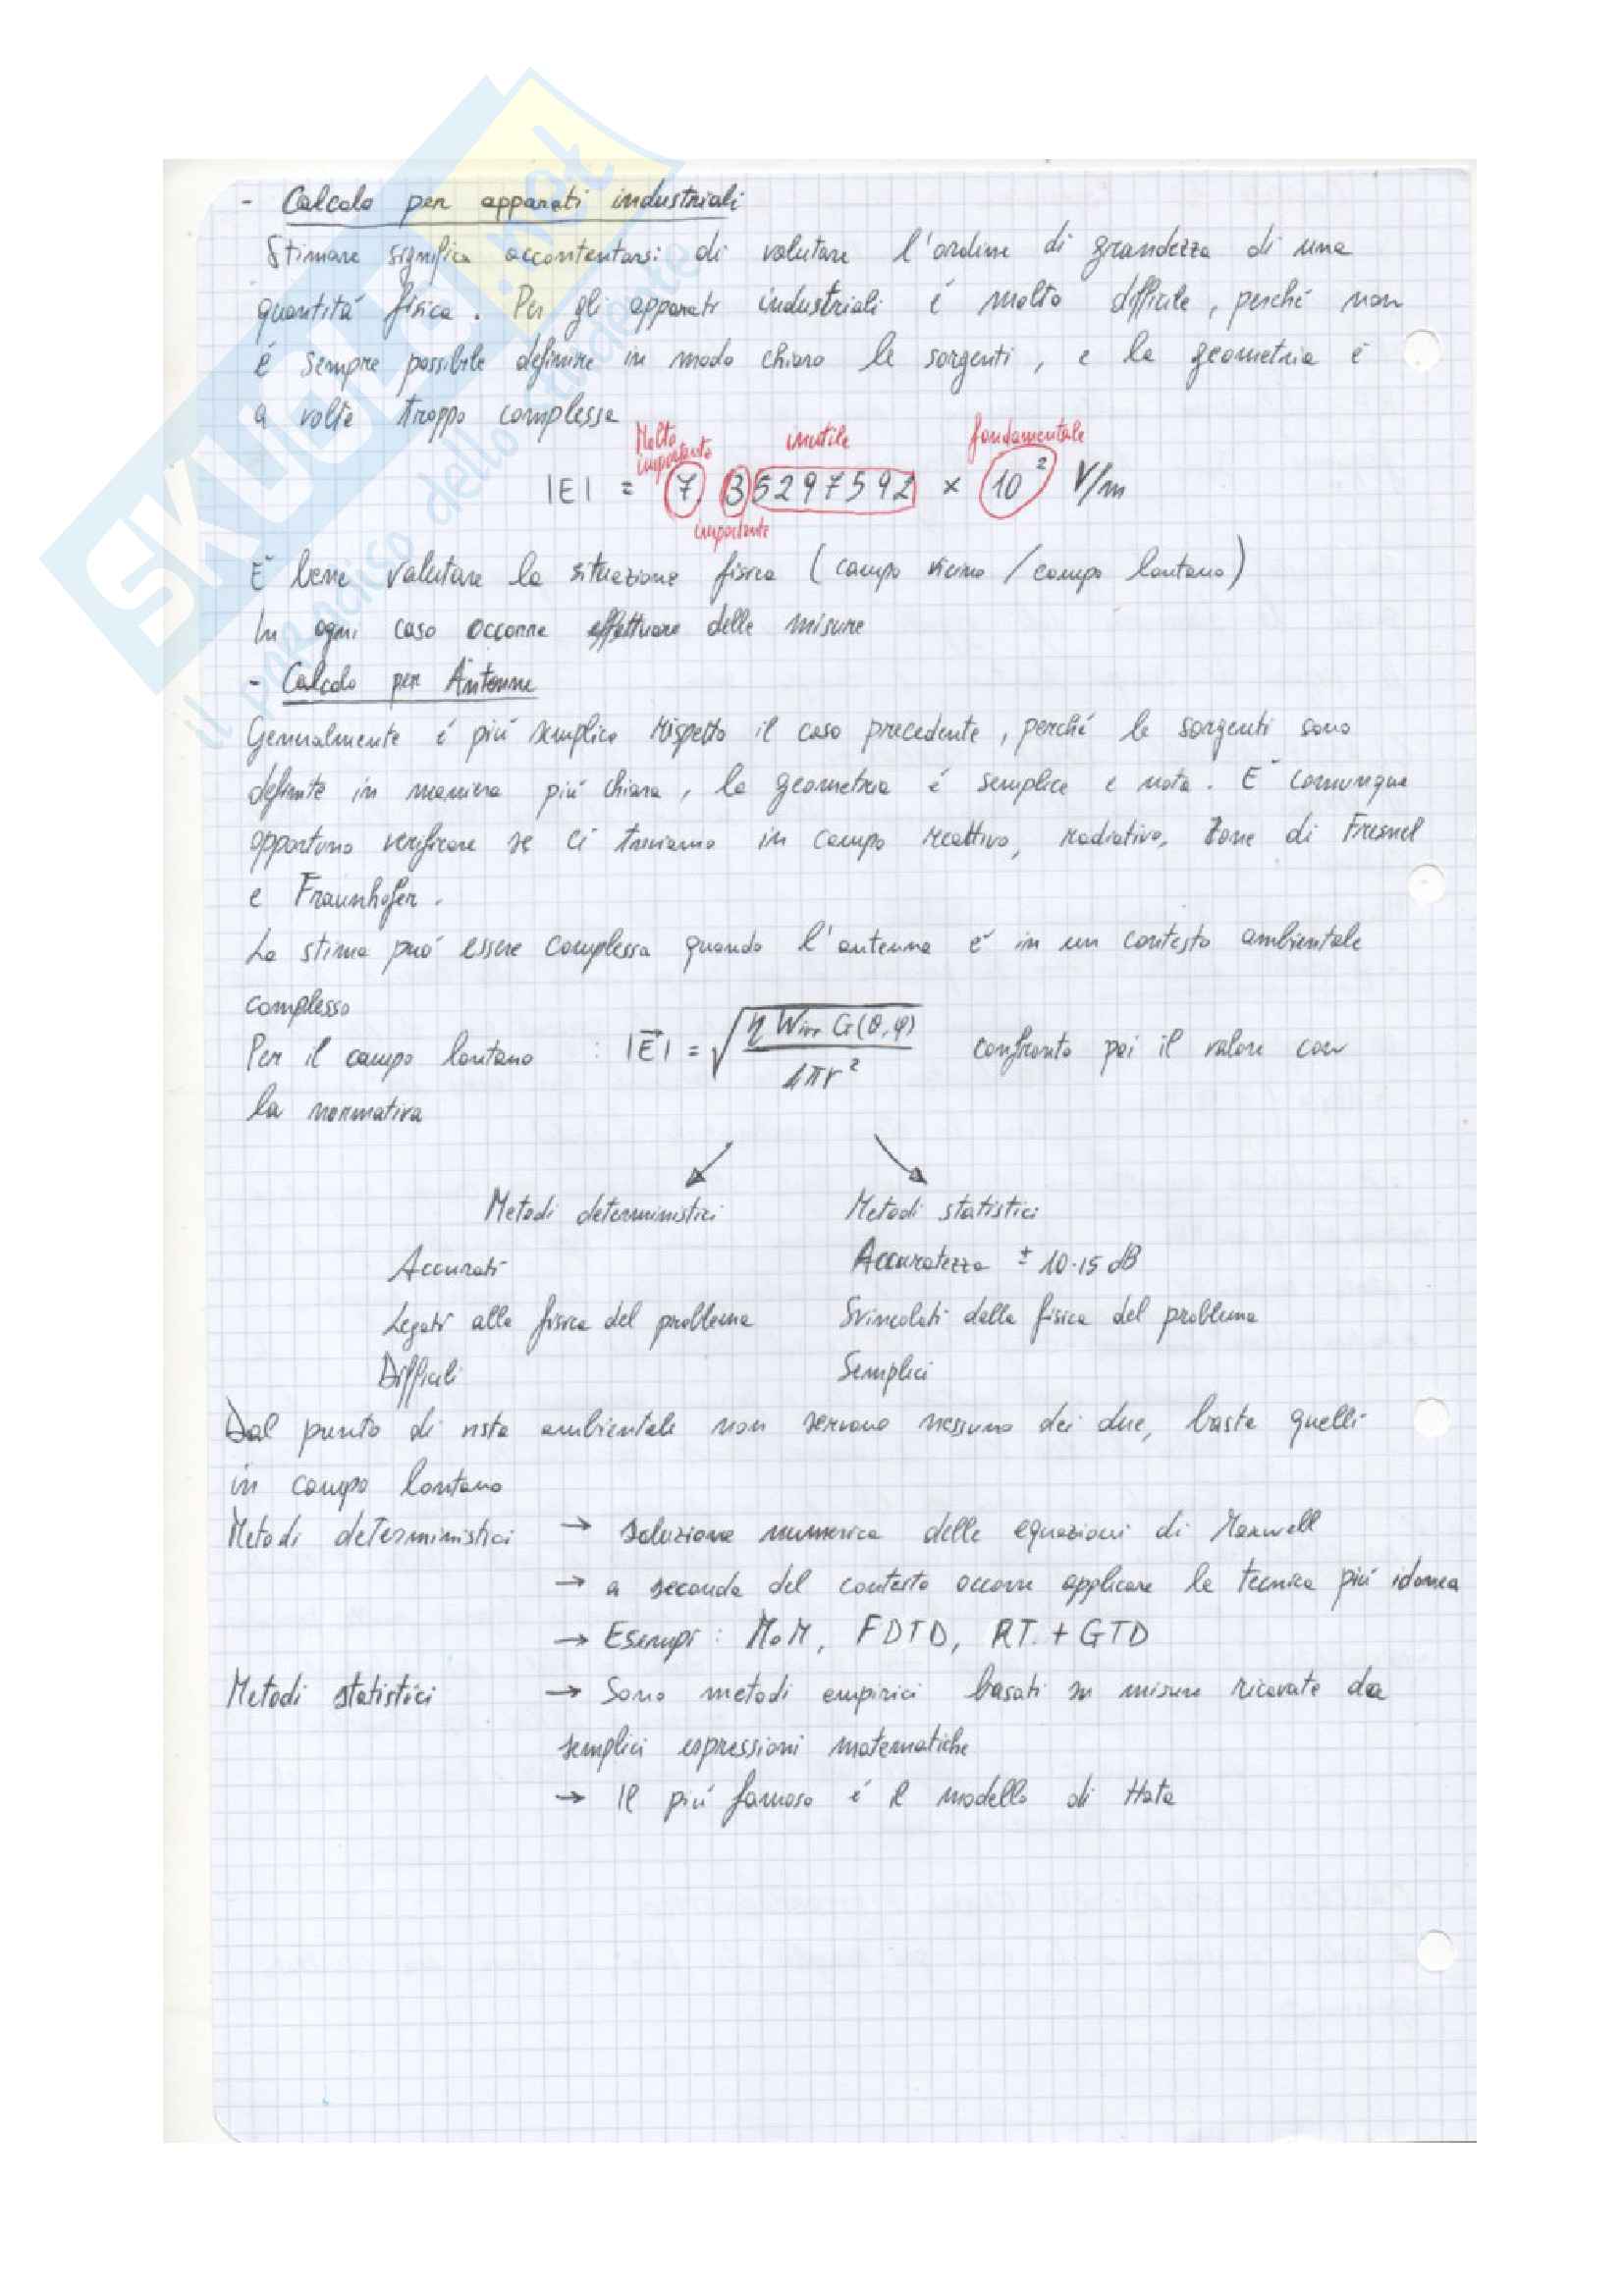 - Calcolo per apparati industriali
Stimare significa accontentarsi di valutare l'ordine di grandezza di una
quantitá fisica. Per gli apparati industriali é molto difficile, perché non
é sempre possibile definire in modo chiaro le sorgenti, e la geometria é
a volte troppo complessa
Molto importante inutile fondamentale
|E| = 7. 35297592 × 10² V/m
importante
É bene valutare la situazione fisica (campo vicino / campo lontano)
In ogni caso occorre effettuare delle misure
- Calcolo per Antenne
Generalmente é piú semplice rispetto il caso precedente, perché le sorgenti sono
definite in maniera piú chiara, la geometria é semplice e nota. É comunque
opportuno verificare se ci troviamo in campo reattivo, radiativo, zone di Fresnel
e Fraunhofer.
La stima puó essere complessa quando l'antenna é in un contesto ambientale
complesso
Per il campo lontano : |E⃗| = √(η Wirr G(θ,φ) / 4πr²) confronto poi il valore con
la normativa
Metodi deterministici Metodi statistici
Accurati Accuratezza ± 10-15 dB
Legati alla fisica del problema Svincolati dalla fisica del problema
Difficili Semplici
Dal punto di vista ambientale non servono nessuno dei due, basta quelli
in campo lontano
Metodi deterministici → soluzione numerica delle equazioni di Maxwell
→ a seconda del contesto occorre applicare la tecnica piú idonea
→ Esempi: MoM, FDTD, RT. + GTD
Metodi statistici → Sono metodi empirici basati su misure ricavate da
semplici espressioni matematiche
→ Il piú famoso é il modello di Hata
SKUOLA.net
il paradiso dello studente